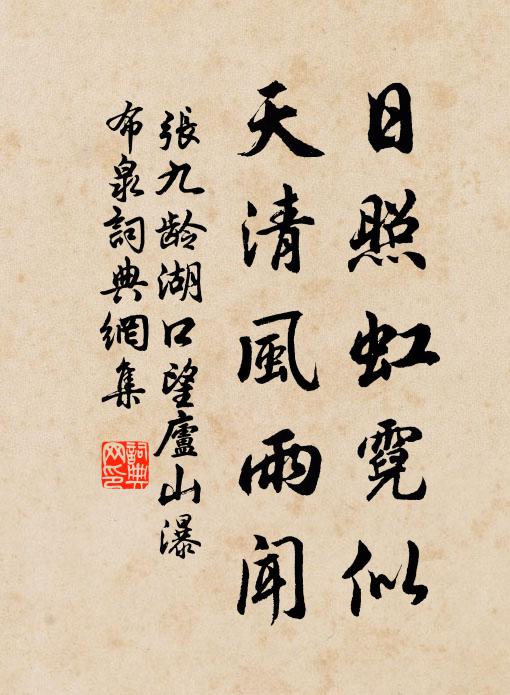 日照虹霓似
天清風雨闻
張九龄湖口望廬山瀑
布泉詞典網集
詞典
网印